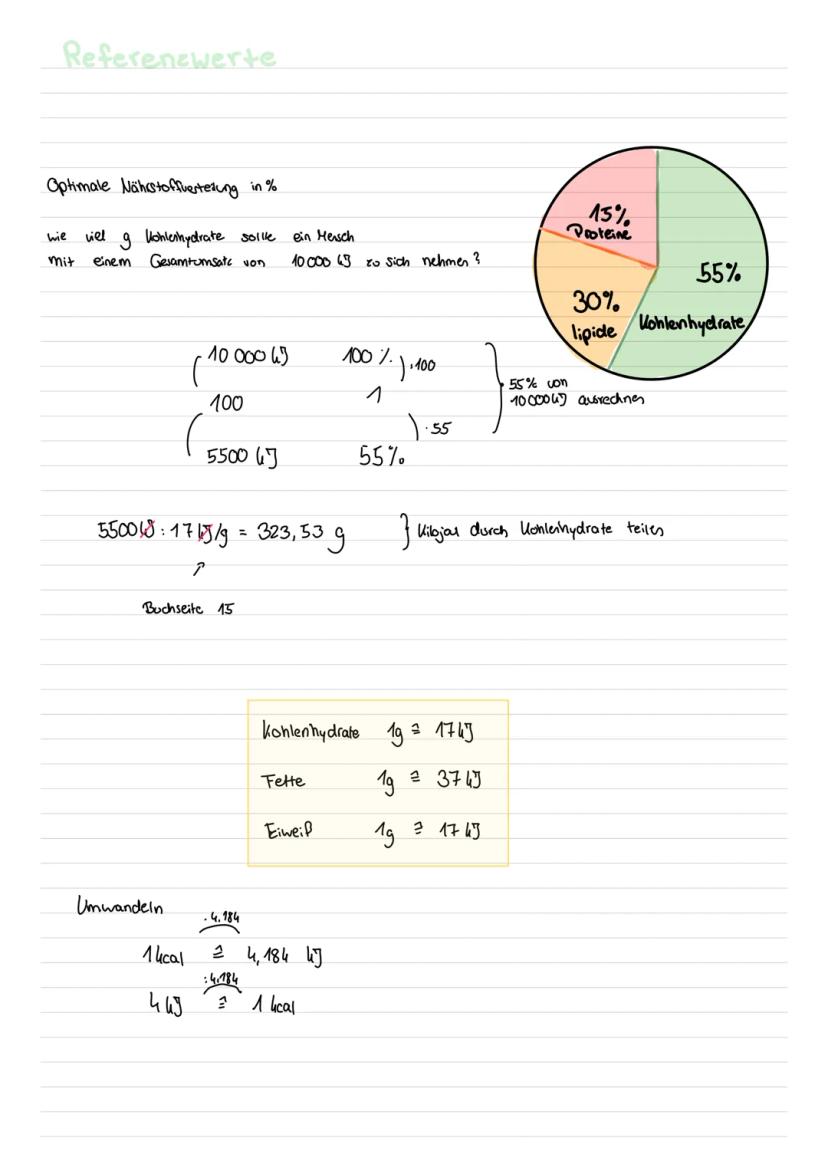 Referenzwerte
Optimale Nährstoffverteilung in %
wie viel g Kohlenhydrate sollte ein Mensch
mit einem Gesamtumsatz von 10 000 kJ zu sich nehmen?
15%
Proteine
55%
Kohlenhydrate
30%
lipide
10 000 kJ 100 % :100
100 1
· 55
5500 kJ 55%
55% von
10 000 kJ ausrechnen
5500 kJ : 17 kJ/g = 323,53 g } Kilojoul durch Kohlenhydrate teilen
Buchseite 15
Kohlenhydrate 1g ≙ 17 kJ
Fette 1g ≙ 37 kJ
Eiweiß 1g ≙ 17 kJ
Umwandeln
· 4,184
1 kcal ≙ 4,184 kJ
: 4,184
4 kJ ≙ 1 kcal